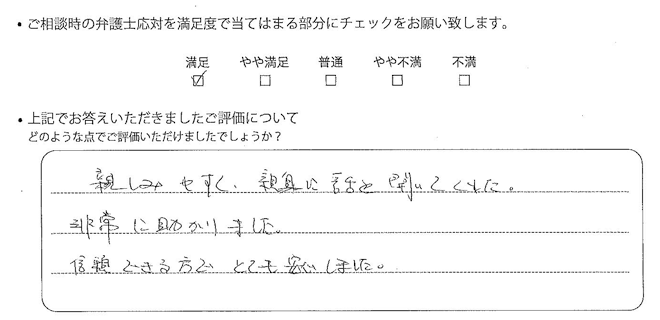 ・ご相談時の弁護士応対を満足度で当てはまる部分にチェックをお願い致します。
満足 やや満足 普通 やや不満 不満
☑ □ □ □ □
・上記でお答えいただきましたご評価について
どのような点でご評価いただけましたでしょうか？
親しみやすく、親身に話を聞いてくれた。
非常に助かりました。
信頼できる方でとても安心しました。